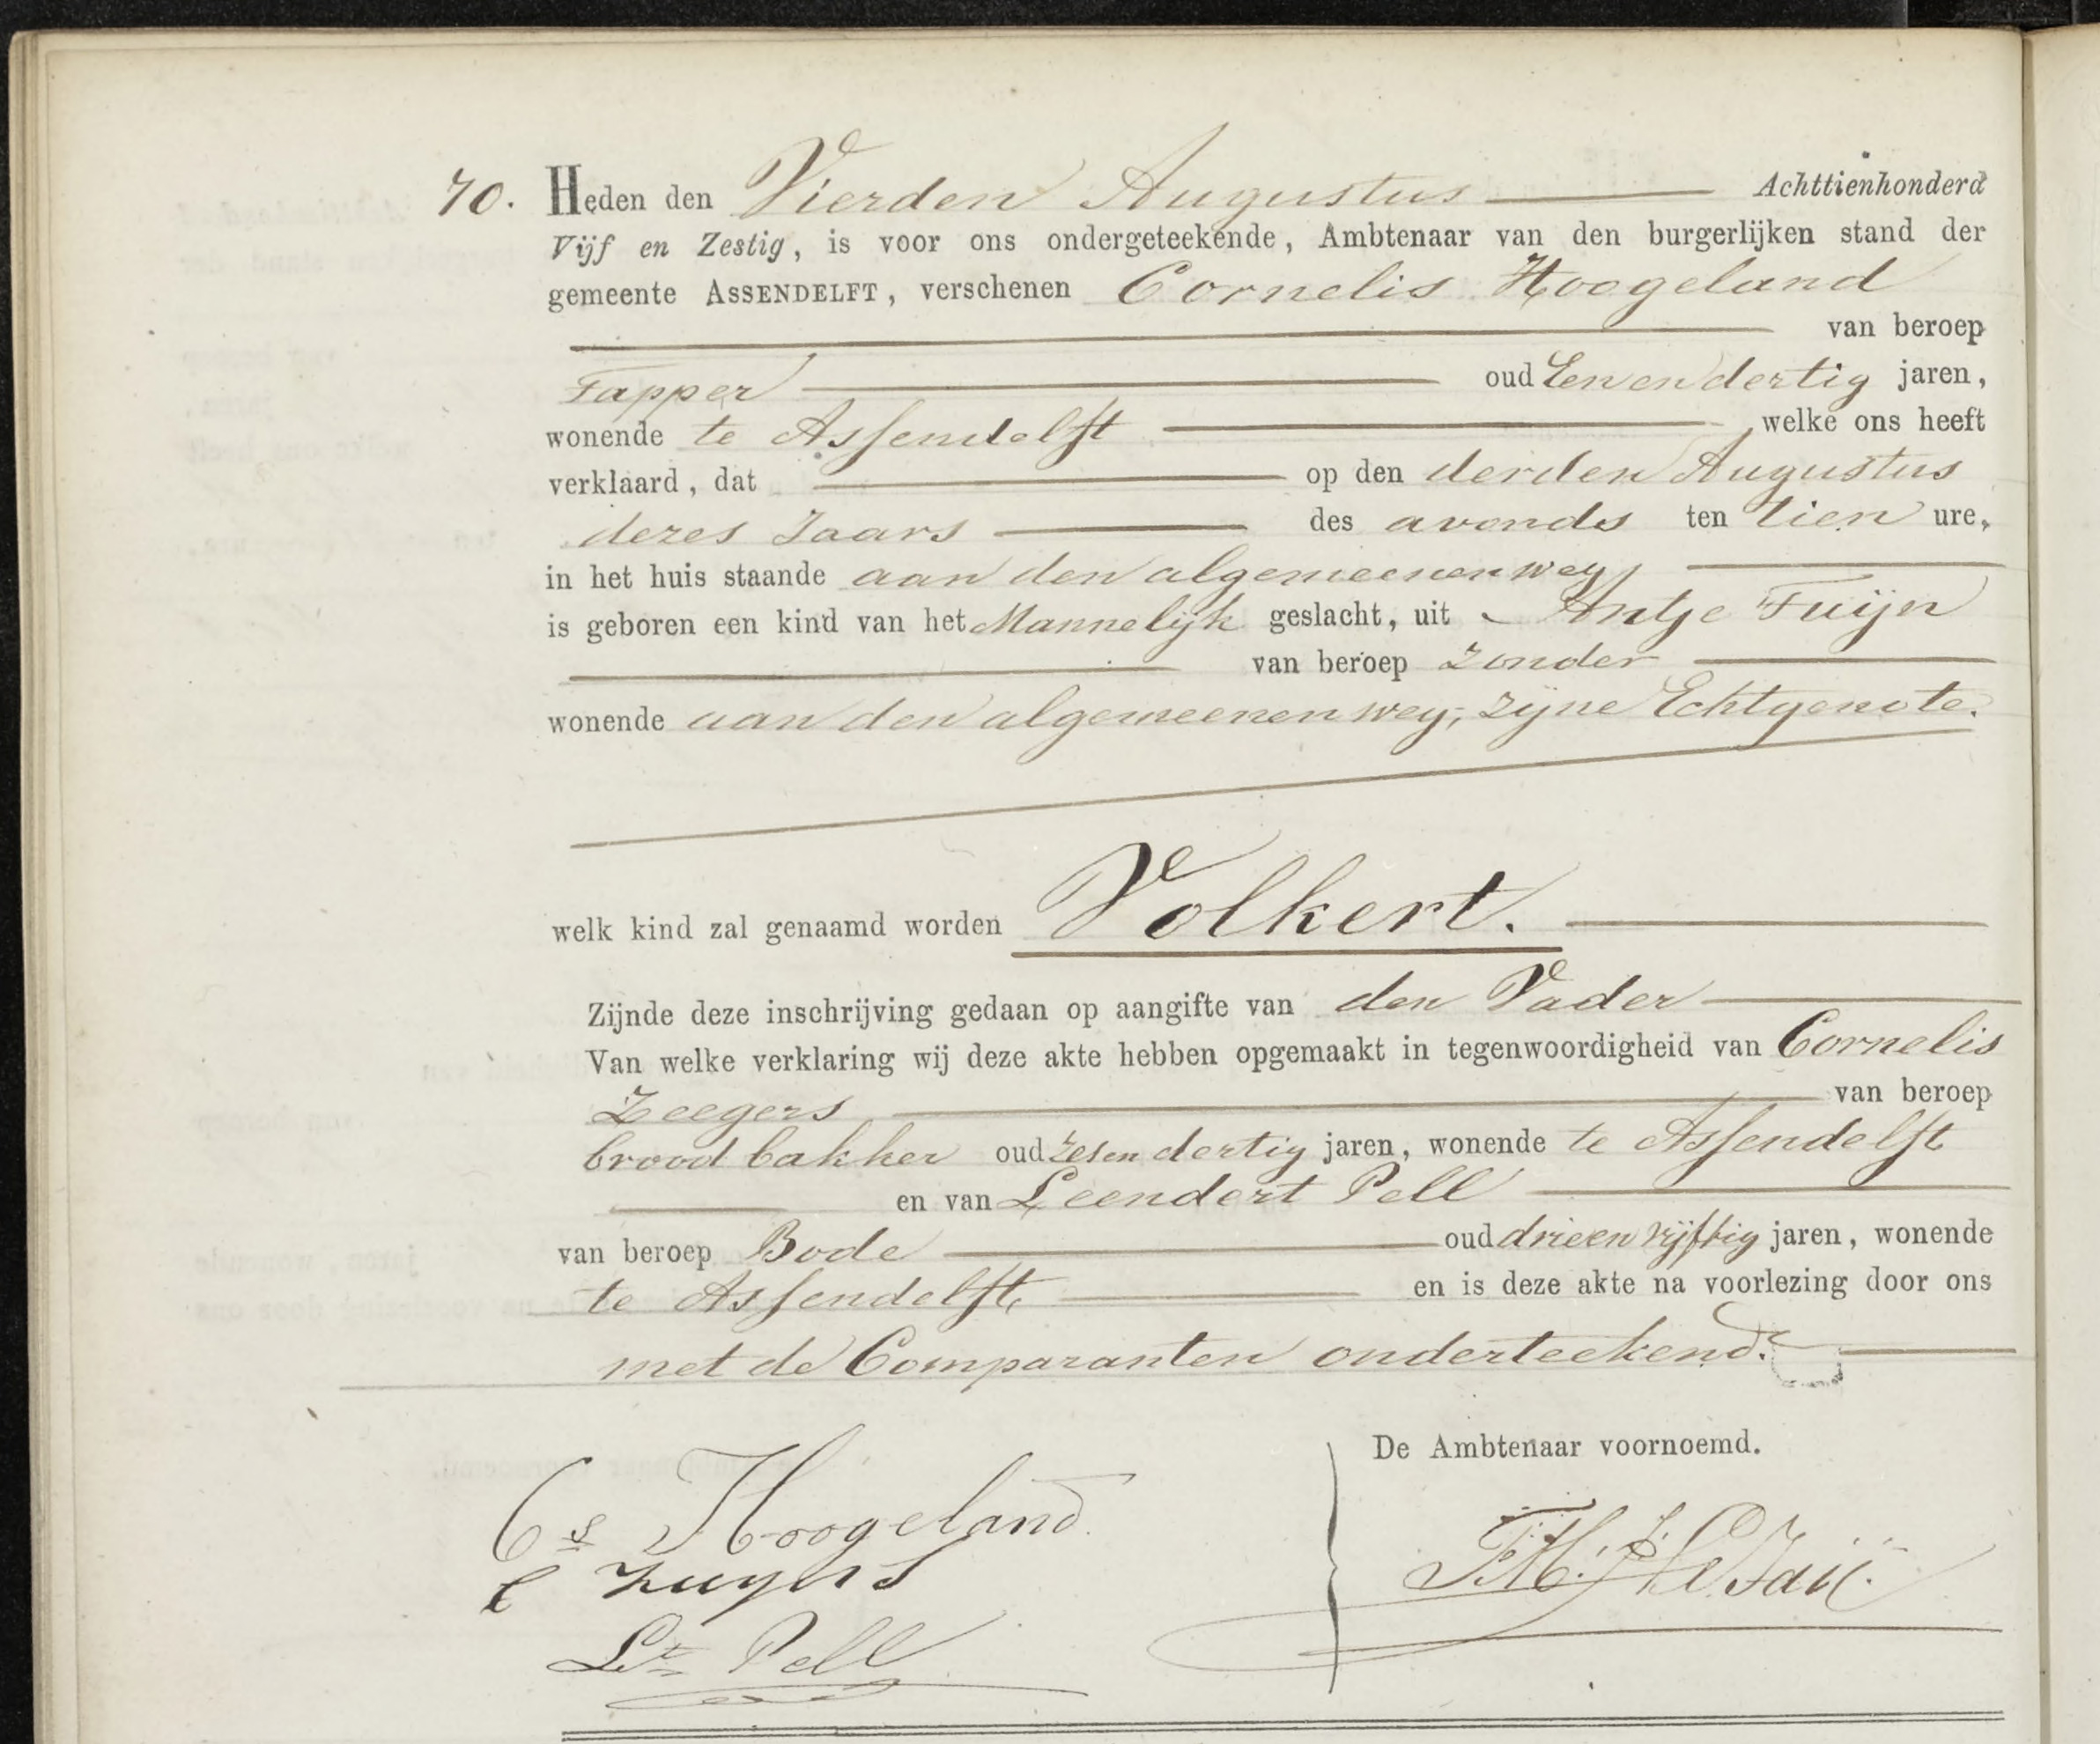 70. Heden den Vierden Augustus Achttienhonderd
Vijf en Zestig, is voor ons ondergeteekende, Ambtenaar van den burgerlijken stand der
gemeente ASSENDELFT, verschenen Cornelis Hoogeland
van beroep
Tapper oud Eenendertig jaren,
wonende te Assendelft welke ons heeft
verklaard, dat op den derden Augustus
dezes Jaars des avonds ten tien ure,
in het huis staande aan den algemeenen weg,
is geboren een kind van het Mannelijk geslacht, uit Antje Tuijn
van beroep zonder
wonende aan den algemeenen weg, zijne Echtgenote.
welk kind zal genaamd worden Volkert.
Zijnde deze inschrijving gedaan op aangifte van den Vader
Van welke verklaring wij deze akte hebben opgemaakt in tegenwoordigheid van Cornelis
Zeegers van beroep
broodbakker oud zesendertig jaren, wonende te Assendelft
en van Leendert Pell
van beroep Bode oud drieenvijftig jaren, wonende
te Assendelft, en is deze akte na voorlezing door ons
met de Comparanten onderteekend.
De Ambtenaar voornoemd.
Cs Hoogeland
C
Lt Pell